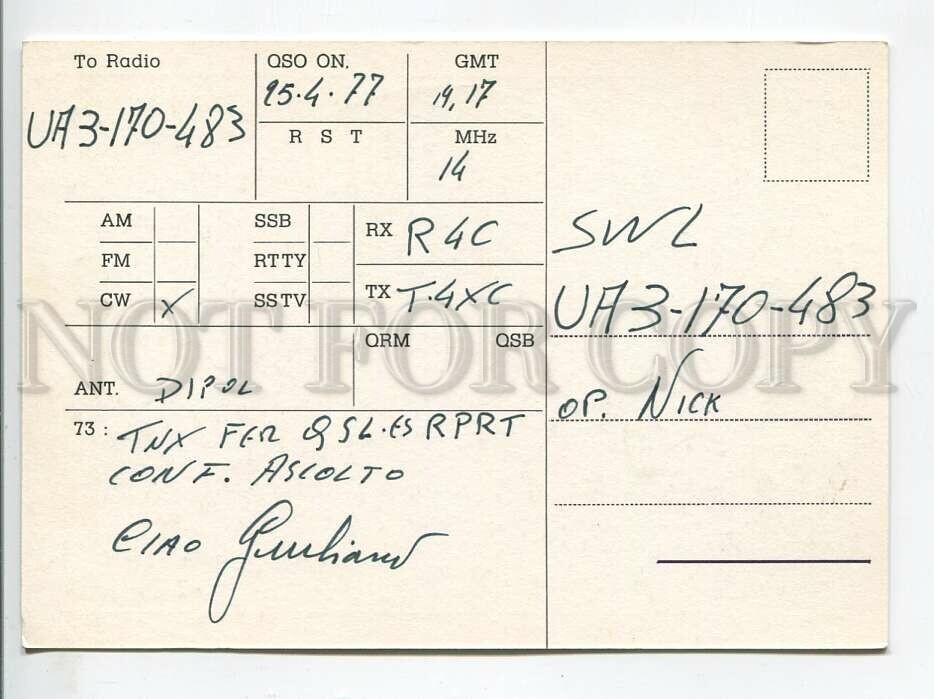 To Radio
UA3-170-483
QSO ON.
25.4.77
GMT
19,17
R S T
MHz
14
AM
FM
CW X
SSB
RTTY
SSTV
RX R4C
TX T.4XC
QRM QSB
ANT. DIPOL
73 : TNX FER QSL.ES RPRT
CONF. ASCOLTO
CIAO Giuliano
SWL
UA3-170-483
OP. NICK
NOT FOR COPY